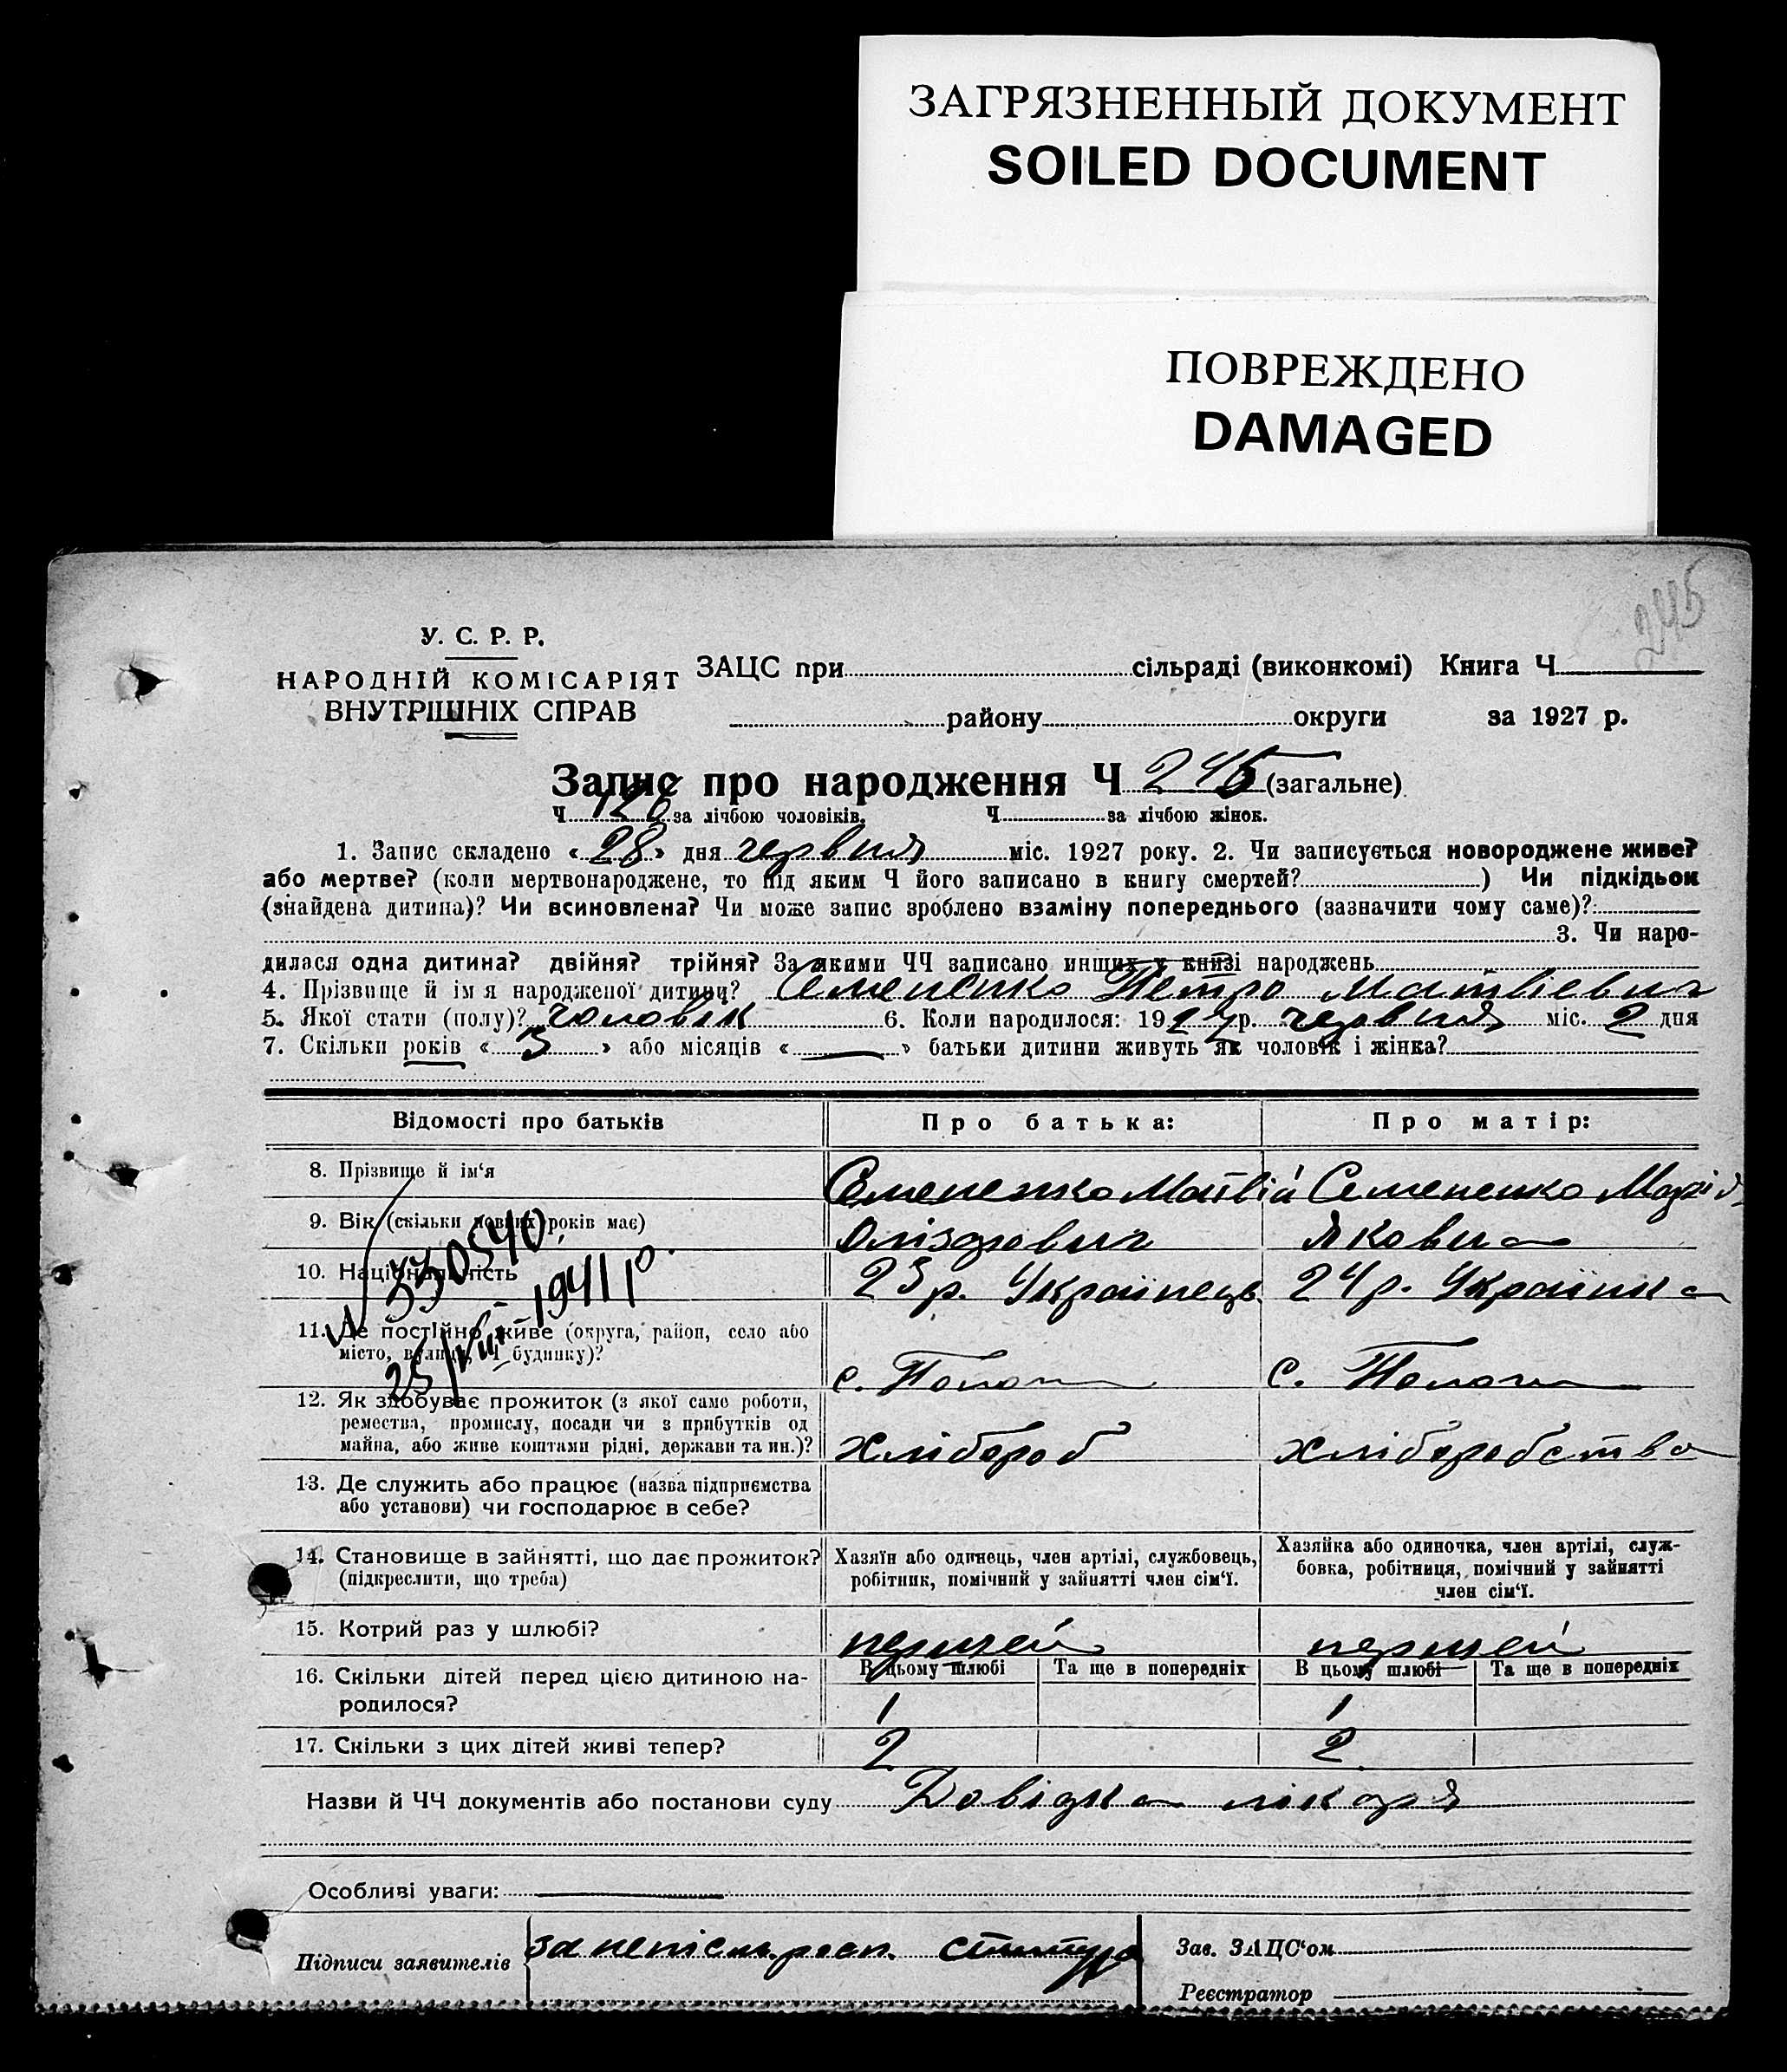 ЗАГРЯЗНЕННЫЙ ДОКУМЕНТ
SOILED DOCUMENT
ПОВРЕЖДЕНО
DAMAGED
245
У. С. Р. Р.
НАРОДНІЙ КОМІСАРІЯТ
ВНУТРІШНІХ СПРАВ
ЗАЦС при сільраді (виконкомі) Книга Ч
району округи за 1927 р.
Запис про народження Ч 245 (загальне)
Ч 126 за лічбою чоловіків. Ч за лічбою жінок.
1. Запис складено «28» дня червня міс. 1927 року. 2. Чи записується новороджене живе?
або мертве? (коли мертвонароджене, то під яким Ч його записано в книгу смертей? ) Чи підкідьок
(знайдена дитина)? Чи всиновлена? Чи може запис зроблено взаміну попереднього (зазначити чому саме)?
3. Чи наро-
дилася одна дитина? двійня? трійня? За якими ЧЧ записано инших у книзі народжень
4. Прізвище й ім я народженої дитини? Семененко Петро Матвієвич
5. Якої стати (полу)? чоловік 6. Коли народилося: 1927 р. червня міс. 2 дня
7. Скільки років « 3 » або місяців « — » батьки дитини живуть як чоловік і жінка?
Відомості про батьків Про батька: Про матір:
8. Прізвище й ім‘я Семененко Матвій Семененко Марія
9. Вік (скільки повних років має) Якович
10. Національність 23 р. Українець 24 р. Українка
11. Де постійно живе (округа, район, село або
місто, вулиця, Ч будинку)? с. Пологи с. Пологи
№ 330540
25/VIII-1941 р.
12. Як здобуває прожиток (з якої саме роботи,
ремества, промислу, посади чи з прибутків од
майна, або живе коштами рідні, держави та ин.)? хлібороб хліборобство
13. Де служить або працює (назва підприємства
або установи) чи господарює в себе?
14. Становище в зайнятті, що дає прожиток?
(підкреслити, що треба)
Хазяїн або одинець, член артілі, службовець,
робітник, помічний у зайнятті член сім‘ї.
Хазяйка або одиночка, член артілі, служ-
бовка, робітниця, помічний у зайнятті
член сім‘ї.
15. Котрий раз у шлюбі? першей першей
16. Скільки дітей перед цією дитиною на-
родилося?
В цьому шлюбі Та ще в попередніх В цьому шлюбі Та ще в попередніх
1 1
17. Скільки з цих дітей живі тепер? 2 2
Назви й ЧЧ документів або постанови суду Довідка лікаря
Особливі уваги: —
Підписи заявителів за неписм. росп.
Зав. ЗАЦС‘ом
Реєстратор